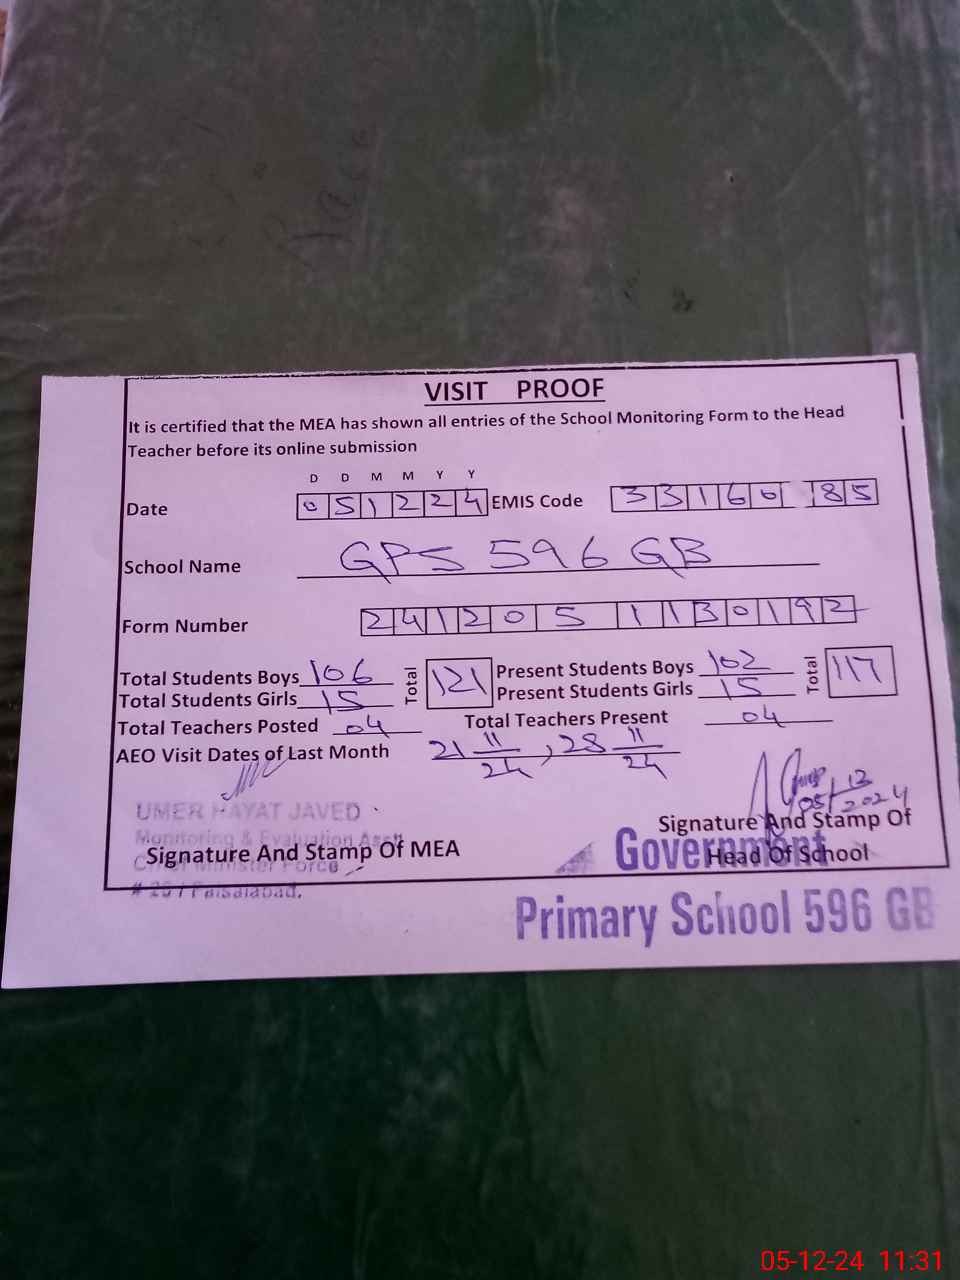 VISIT PROOF
It is certified that the MEA has shown all entries of the School Monitoring Form to the Head
Teacher before its online submission
D D M M Y Y
Date 051224 EMIS Code 33160 85
School Name GPS 596 GB
Form Number 241205 1130192
Total Students Boys 106 Total 121 Present Students Boys 102 Total 117
Total Students Girls 15 Present Students Girls 15
Total Teachers Posted 04 Total Teachers Present 04
AEO Visit Dates of Last Month 21 11/24, 28 11/24
05/12/2024
UMER HAYAT JAVED
Monitoring & Evaluation Asstt
Signature And Stamp Of MEA
Chief Minister Force
Faisalabad.
Signature And Stamp Of
Head Of School
Government
Primary School 596 GB
05-12-24 11:31